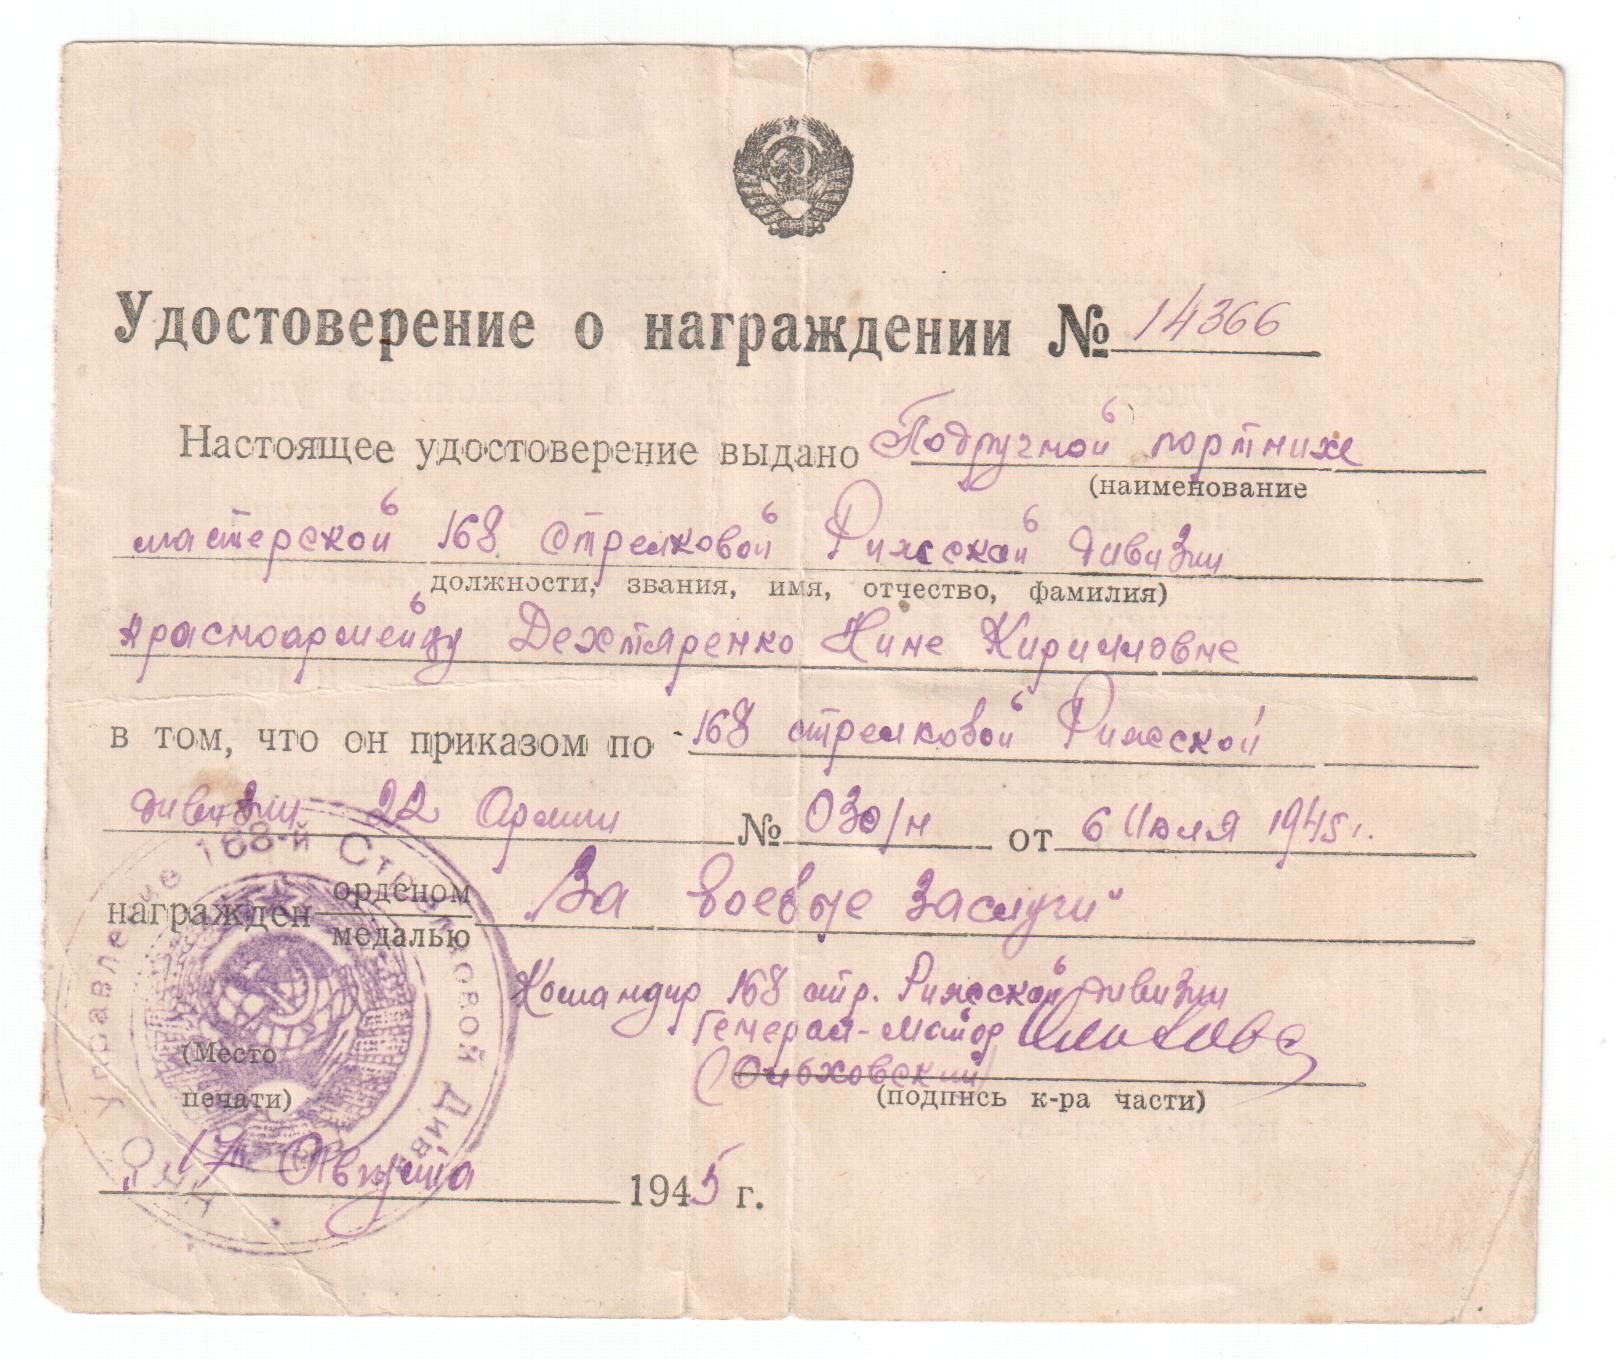 Удостоверение о награждении № 14366
Настоящее удостоверение выдано Подручной портнихе
(наименование
мастерской 168 стрелковой Рижской дивизии
должности, звания, имя, отчество, фамилия)
Красноармейцу Дехтяренко Нине Кирилловне
в том, что он приказом по 168 стрелковой Рижской
дивизии 22 Армии № 030/н от 6 Июля 1945 г.
награжден орденом
медалью
За боевые заслуги"
Командир 168 стр. Рижской дивизии
Генерал-майор
(Ольховский)
(подпись к-ра части)
(Место
печати)
"17" Августа 1945 г.
Управление 168-й Стрелковой Див.
НКО